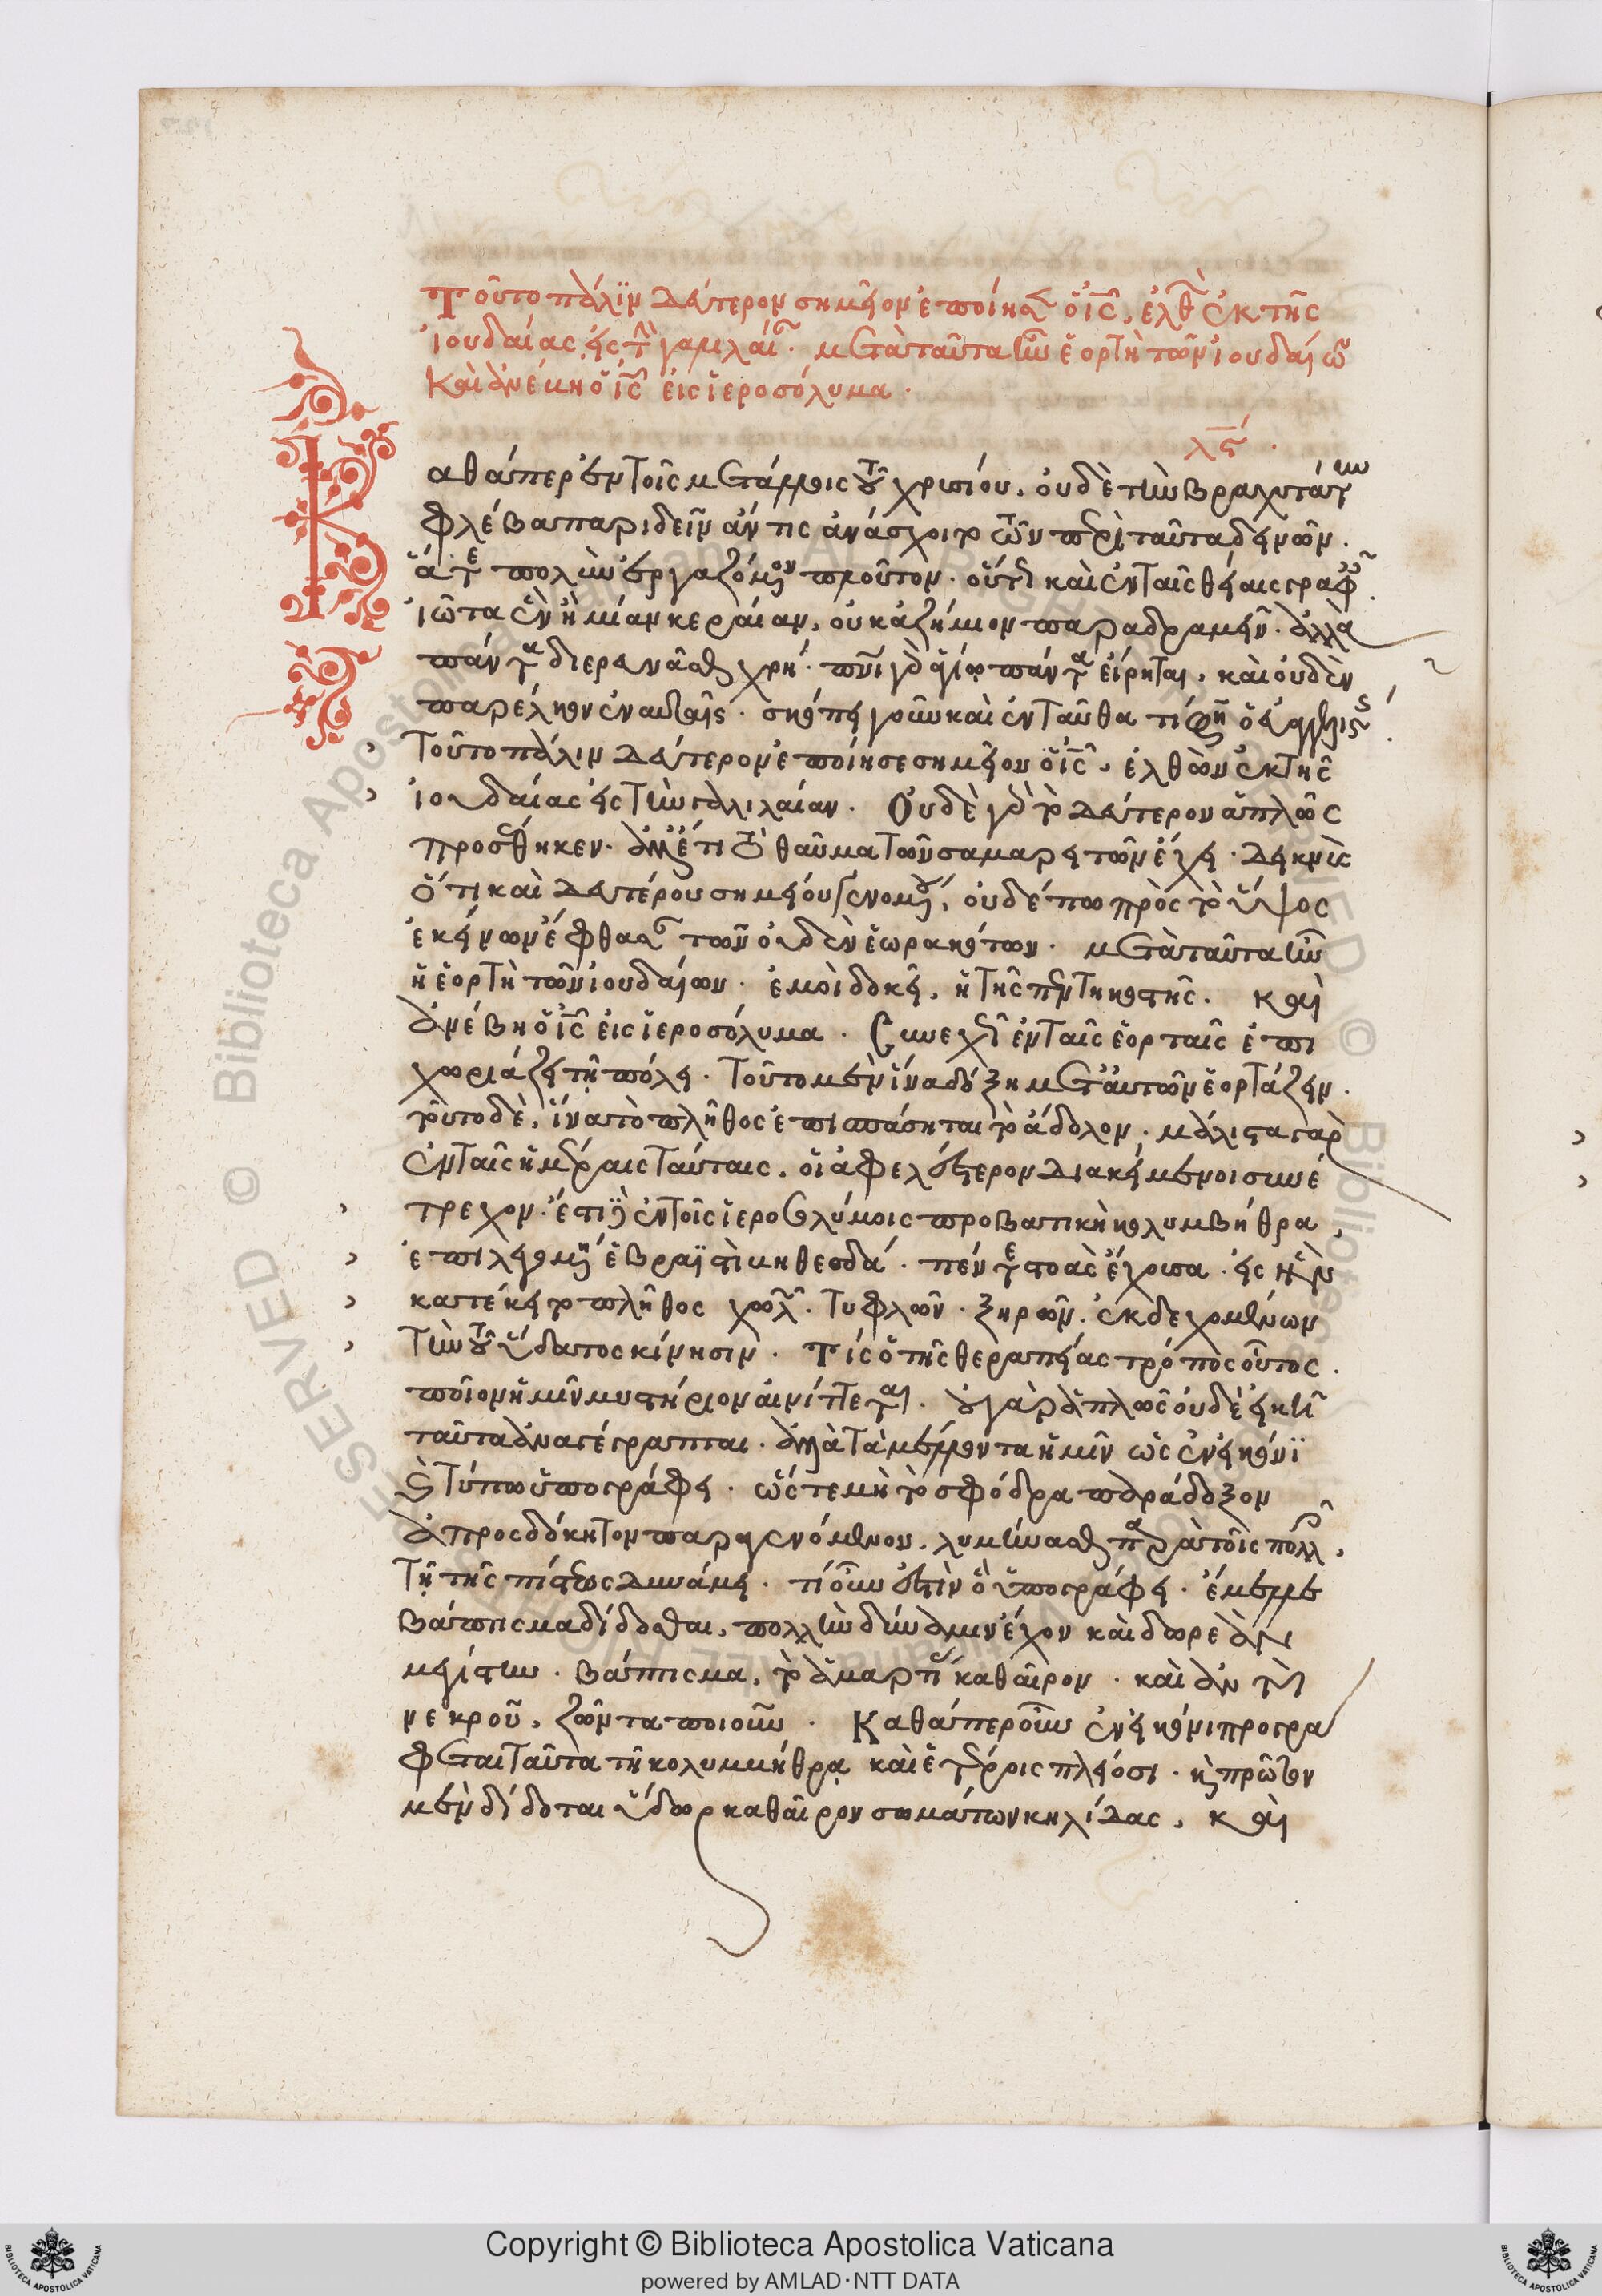 Τοῦτο πάλϊν δεύτερον σημεῖον ἐποίησεν ὁ ἰς, ἐλθὼν ἐκ τῆς
ἰουδαίας εἰς τὴν γαλιλαίαν. μετὰ ταῦτα ἦν ἑορτὴ τῶν ἰουδαίων
καὶ ἀνέβη ὁ ἰς εἰς ἱεροσόλυμα.
λς.
Καθάπερ ἐν τοῖς μετάλλοις τοῦ χρυσίου, οὐδὲ τὴν βραχυτάτην
φλέβα παριδεῖν ἄν τις ἀνάσχοιτο τῶν περὶ ταῦτα δεινῶν.
ἅτε πολὺν ἐργαζόμενον πλοῦτον. οὕτω καὶ ἐν ταῖς θείαις γραφαῖς.
ἰῶτα ἓν ἢ μίαν κεραίαν, οὐκ ἀζήμιον παραδραμεῖν. ἀλλὰ
πάντα διερευνᾶσθαι χρή. πνι γὰρ ἁγίω πάντα εἴρηται, καὶ οὐδὲν
παρέλκον ἐν αὐταῖς. σκόπει γοῦν καὶ ἐνταῦθα τί φησιν ὁ εὐαγγελιστής.
Τοῦτο πάλιν δεύτερον ἐποίησε σημεῖον ὁ ἰς, ἐλθὼν ἐκ τῆς
ἰουδαίας εἰς τὴν γαλιλαίαν. Οὐδὲ γὰρ τὸ δεύτερον ἁπλῶς
προσέθηκεν. ἀλλ' ἔτι τὸ θαῦμα τῶν σαμαρειτῶν ἐπαίρει. δεικνὺς
ὅτι καὶ δευτέρου σημείου γενομένου, οὐδέπω πρὸς τὸ ὕψος
ἐκείνων ἔφθασαν τῶν οὐδὲν ἑωρακότων. μετὰ ταῦτα ἦν
ἡ ἑορτὴ τῶν ἰουδαίων. ἐμοὶ δοκεῖ, ἡ τῆς πεντηκοστῆς. καὶ
ἀνέβη ὁ ἰς εἰς ἱεροσόλυμα. Συνεχῶς ἐν ταῖς ἑορταῖς ἐπι
χωριάζει τῇ πόλει. τοῦτο μὲν ἵνα δόξη μετ' αὐτῶν ἑορτάζειν.
τοῦτο δὲ, ἵνα τὸ πλῆθος ἐπισπάσηται τὸ ἄδολον. μάλιστα γὰρ
ἐν ταῖς ἡμέραις ταύταις, οἱ ἀφελέστερον διακείμενοι συνέ
τρεχον. ἔστι δὲ ἐν τοῖς ἱεροσολύμοις προβατικὴ κολυμβήθρα,
ἐπιλεγομένη ἑβραϊστὶ βηθεσδά. πέντε στοὰς ἔχουσα. ἐς ἣν
κατέκειτο πλῆθος χωλῶν. τυφλῶν. ξηρῶν. ἐκδεχομένων
τὴν τοῦ ὕδατος κίνησιν. τίς ὁ τῆς θεραπείας τρόπος οὗτος.
ποῖον ἡμῖν μυστήριον αἰνίττεται. οὐ γὰρ ἁπλῶς οὐδὲ εἰκῆ
ταῦτα ἀναγέγραπται. ἀλλὰ τὰ μέλλοντα ἡμῖν ὡς ἐν εἰκόνϊ
καὶ τύπω ὑπογράφει. ὥστε μὴ τὸ σφόδρα παράδοξον
ἀπροσδόκητον παραγενόμενον, λυμήνασθαι παρὰ τοῖς πολλοῖς,
τῇ τῆς πίστεως δυνάμει. τί οὖν ἐστὶν ὃ ὑπογράφει. ἔμελλε
βάπτισμα δίδοσθαι, πολλὴν δύναμιν ἔχον καὶ δωρεὰν
μεγίστην. βάπτισμα, τὸ ἁμαρτίας καθαῖρον. καὶ ἀντὶ
νεκροῦ, ζῶντα ποιοῦν. Καθάπερ οὖν ἐν εἰκόνι προγρά
φεται ταῦτα τῇ κολυμβήθρᾳ καὶ ἑτέροις πλείοσι. καὶ πρῶτον
μὲν δίδοται ὕδωρ καθαῖρον σωμάτων κηλίδας, καὶ
Copyright © Biblioteca Apostolica Vaticana
powered by AMLAD·NTT DATA